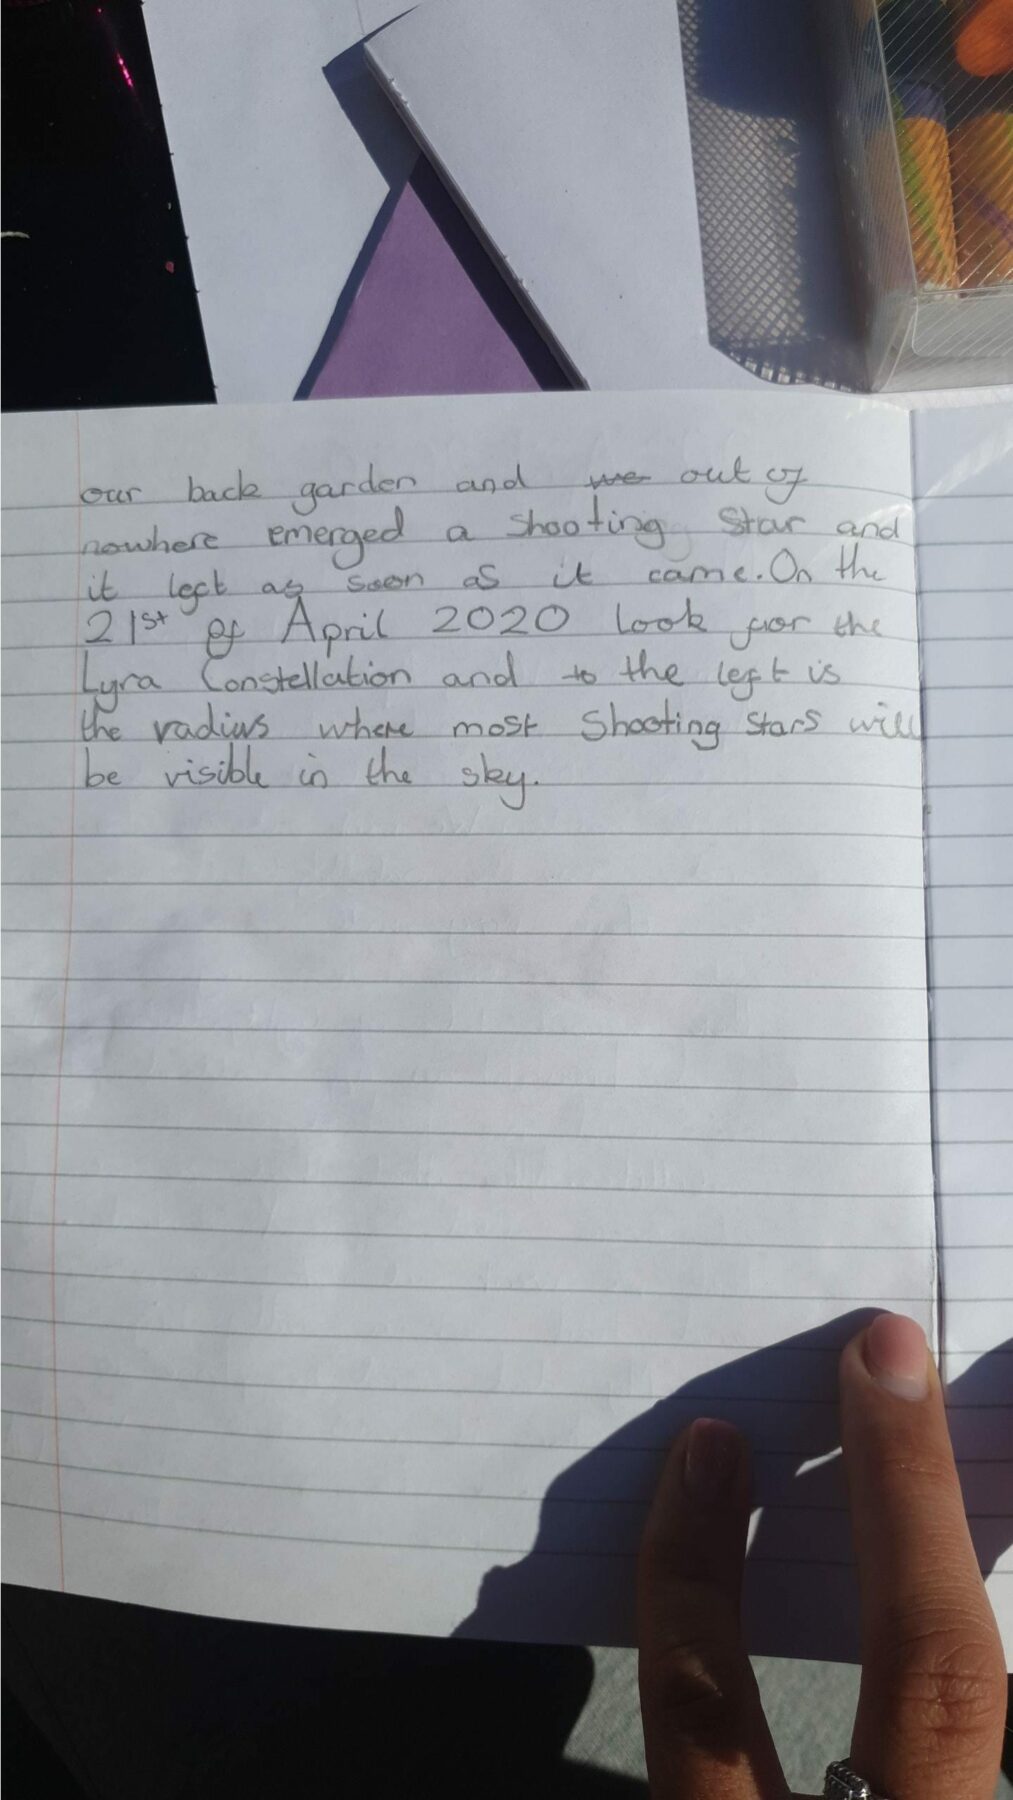 our back garden and we out of
nowhere emerged a shooting Star and
it left as soon as it came. On the
21st of April 2020 look for the
Lyra Constellation and to the left is
the radius where most Shooting Stars will
be visible in the sky.